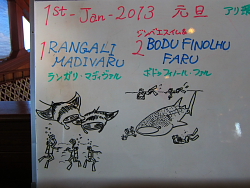 1st-Jan-2013 元旦
1 RANGALI
MADIVARU
ランガリ・マディヴァル
ジンベエスイム&
2 BODU FINOLHU
FARU
ボドゥフィノール・ファル